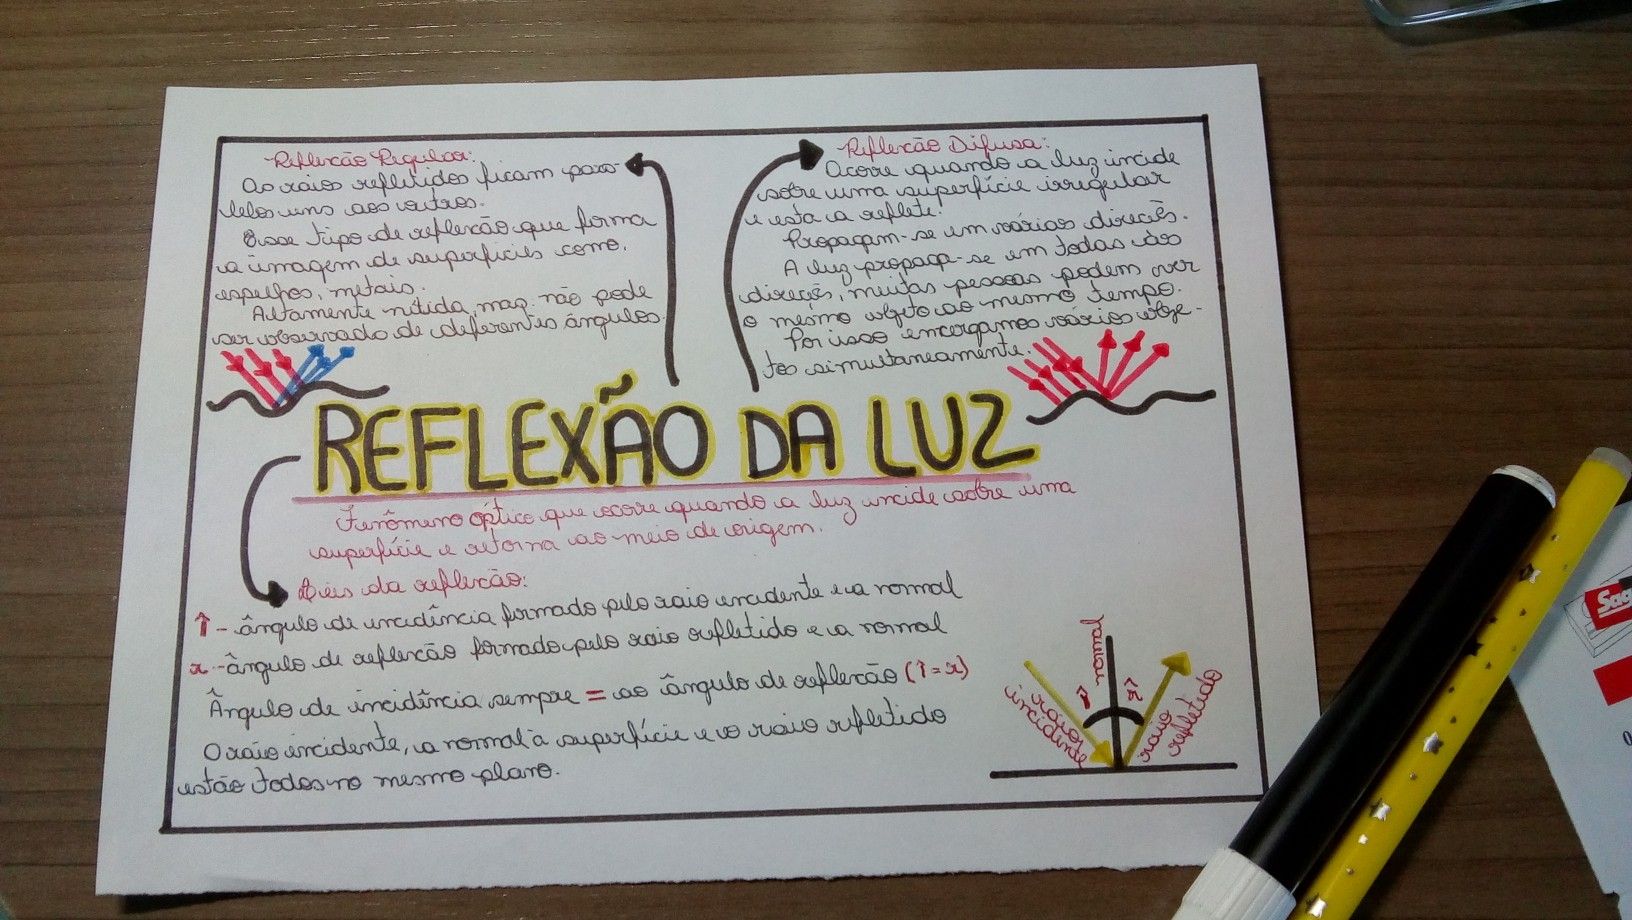 Reflexão Regular:
Os raios refletidos ficam para-
lelos uns aos outros.
Esse tipo de reflexão que forma
a imagem de superfícies como,
espelhos, metais.
Altamente nítida, mas não pode
ser observado de diferentes ângulos.
Reflexão Difusa:
Ocorre quando a luz incide
sobre uma superfície irregular
e esta a reflete.
Propagam-se em várias direções.
A luz propaga-se em todas as
direções, muitas pessoas podem ver
o mesmo objeto ao mesmo tempo.
Por isso enxergamos vários obje-
tos simultaneamente.
REFLEXÃO DA LUZ
Fenômeno óptico que ocorre quando a luz incide sobre uma
superfície e retorna ao meio de origem.
Leis da reflexão:
î - ângulo de incidência formado pelo raio incidente e a normal
r - ângulo de reflexão formado pelo raio refletido e a normal
Ângulo de incidência sempre = ao ângulo de reflexão (î = r)
O raio incidente, a normal à superfície e o raio refletido
estão todos no mesmo plano.
raio
incidente
î
normal
r̂
raio
refletido